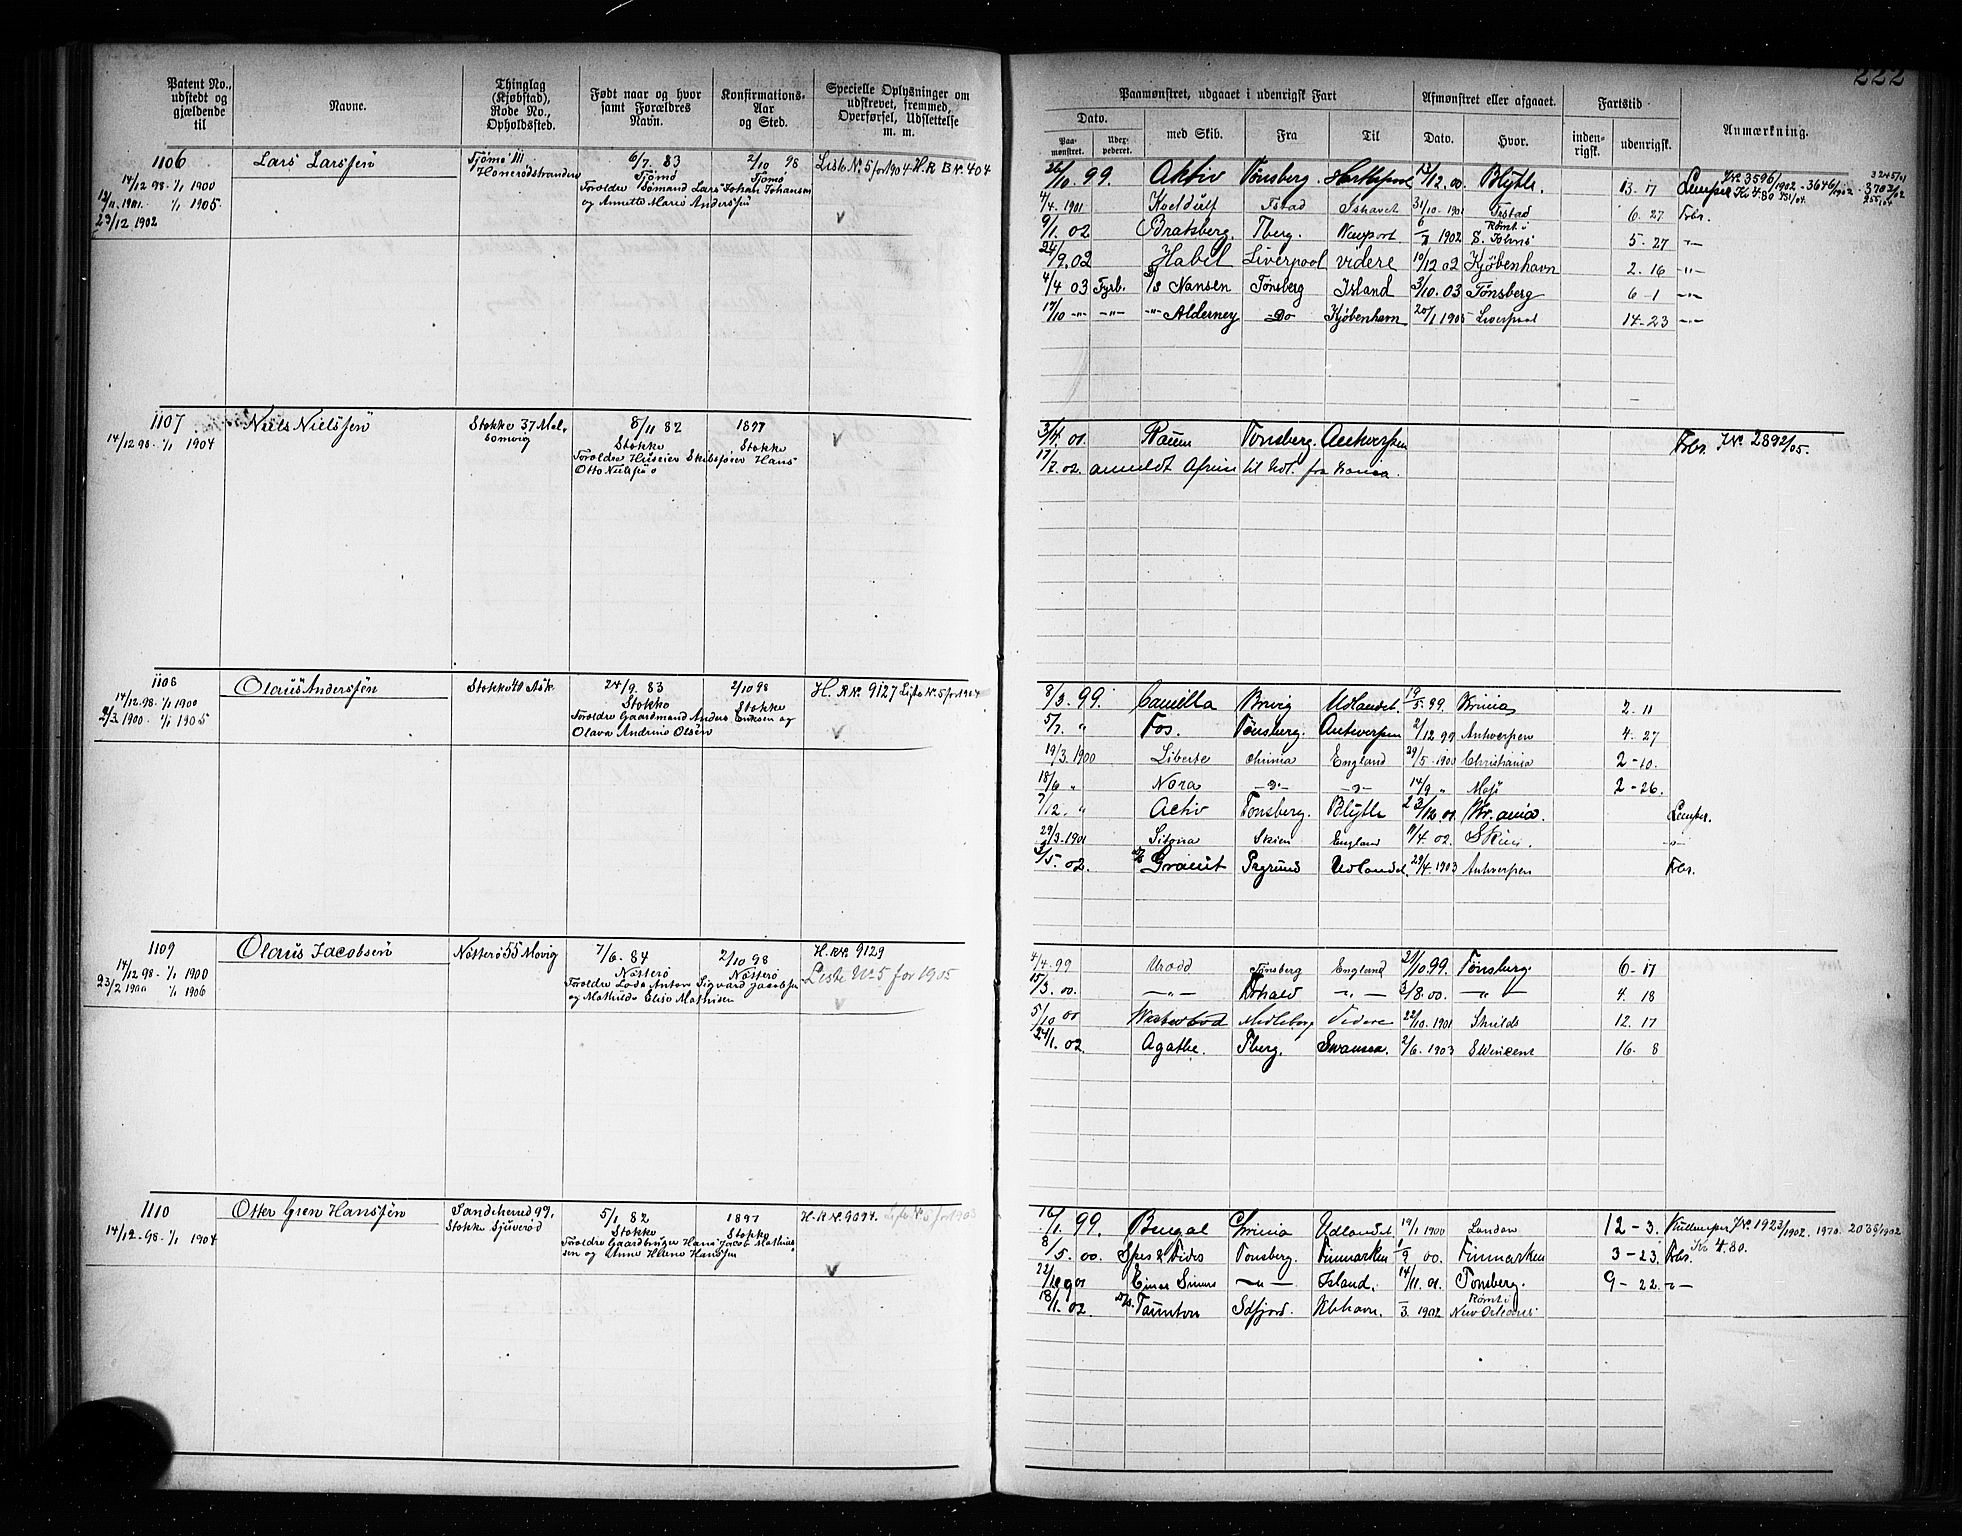 222
Patent No., udstedt og gjældende til
Navne.
Thinglag (Kjøbstad), Rode No., Opholdssted.
Født naar og hvor samt Forældres Navn.
Konfirmations-Aar og Sted.
Specielle Oplysninger om udskrevet, fremmed, Overførsel, Udslettelse m. m.
Paamønstret, udgaaet i udenrigsk Fart
Afmønstret eller afgaaet.
Fartstid
Anmærkning.
Dato.
Paamønstret.
Udexpederet.
med Skib.
Fra
Til
Dato.
Hvor.
inden-rigsk.
udenrigsk.
1106
14/12 98 - 1/1 1900
1/1 1905.
23/12 1902
Lars Larssen
Tjømø 111
Honerødstranden
6/7. 83
Tjømø
Forældre Sømand Lars Johan Johansen
og Annette Marie Andersen
2/10 98
Tjømø
Liste No. 5 for 1904 H.R B No. 404
26/10. 99. Aktiv Tønsberg Hartlepool 12/12. 00. Blythe. 13. 17 Lemper
4/4. 1901 Ishavet 31/10. 1901 6. 27 Fbr.
9/1. 02 Bratsberg. Tberg. Newport. 1902 Rømt i S. Johns 5. 27 -"-
24/9. 02 Habil Liverpool videre 10/12 02 Kjøbenhavn 2. 16 -"-
4/4 03 Fyrb. S/S Nansen Tønsberg Island 3/10. 03 Tønsberg 6 - 1 -"-
17/10 -"- -"- -"- Alderney Do Kjøbenhavn 20/1 1905 Liverpool 14. 23 -"-
1107
14/12 98. 1/1 1904
Niels Nielssen
Stokke 37 Melsomvig
8/11 82
Stokke
Forældre Huseier Skibsfører Hans
Otto Nielsen
1897
Stokke
3/4. 01. Raum Tonsberg. Antwerpen Fbr. JNo. 2892/05.
17/7. 02. anmeldt
1108
14/12. 98. 1/1 1900
2/3. 1900. 1/1 1905
Olaus Anderssen
Stokke 40 Ask
24/9. 83
Stokke
Forældre Gaardmand Anders Eriksen og
Olava Andrine Olsen
2/10 98
Stokke
H. R No. 9127 Liste No. 5 for 1904
8/3. 99. Camilla Brevig Udlandet 19/5. 99. Krinia 2. 11
5/7. " Fos. Tønsberg. Antwerpen 2/12 99 Antwerpen 4. 27
19/3. 1900 Liberte Chrinia England 29/5. 1900 Christiania 2 - 10.
18/6 " Nora 14/9 " Moss 2 - 26.
7/12. " Activ Tonsberg. Blythe 23/12. 01. Kr.ania. Lemper.
29/3. 1901 Skien England 11/4. 02. Skien. "
3/5. 02. Granit Prgrund Udlandet. 29/4. 1903 Antwerpen Fbr.
1109
14/12 98. 1/1 1900
23/2 1900 1/1 1906
Olaus Jacobsen
Nøtterø 55 Movig
7/6. 84
Nøtterø
Forældre Lods Anton Sigvard Jacobsen
og Mathilde Elise Mathisen
2/10 98
Nøtterø
H. R No. 9129
Liste No 5 for 1905
4/4. 99 Uradd Tønsberg England 21/10. 99. Tønsberg. 6 - 17
15/3. 00. -"- -"- 3/8. 00. -"- 4. 18
5/10 00 Videre 22/10. 1901 Shields 12. 17
24/1. 02. Agathe. Tberg. Swansea. 2/6. 1903 St Vincent 16. 8
1110
14/12. 98. 1/1 1904
Otter Gren Hanssen
Sandeherred 99.
Stokke Sjuverød
5/1 82
Stokke
Forældre Gaardbruger Hans Jacob Mathiassen
og Anne Helene Hansen
1897
Stokke
H. R No. 9094.
16/1. 99. Bengal Chrinia Udlandet 19/1 1900 London 12 - 3. Kullemper JNo. 1923/1902. 1970. 2036/1902
Kr 4.80.
8/5. 00. Spes & Fides Tonsberg. Finmarken 1/9 00. Finmarken 3 - 23. Fbr.
Einar Simers -"- Island. 14/11. 01. Tonsberg. 9 - 22. -"-
18/1. 02 D/S. Taunton Sdfjord. Kbhavn. 3. 1902 Rømt i New Orleans